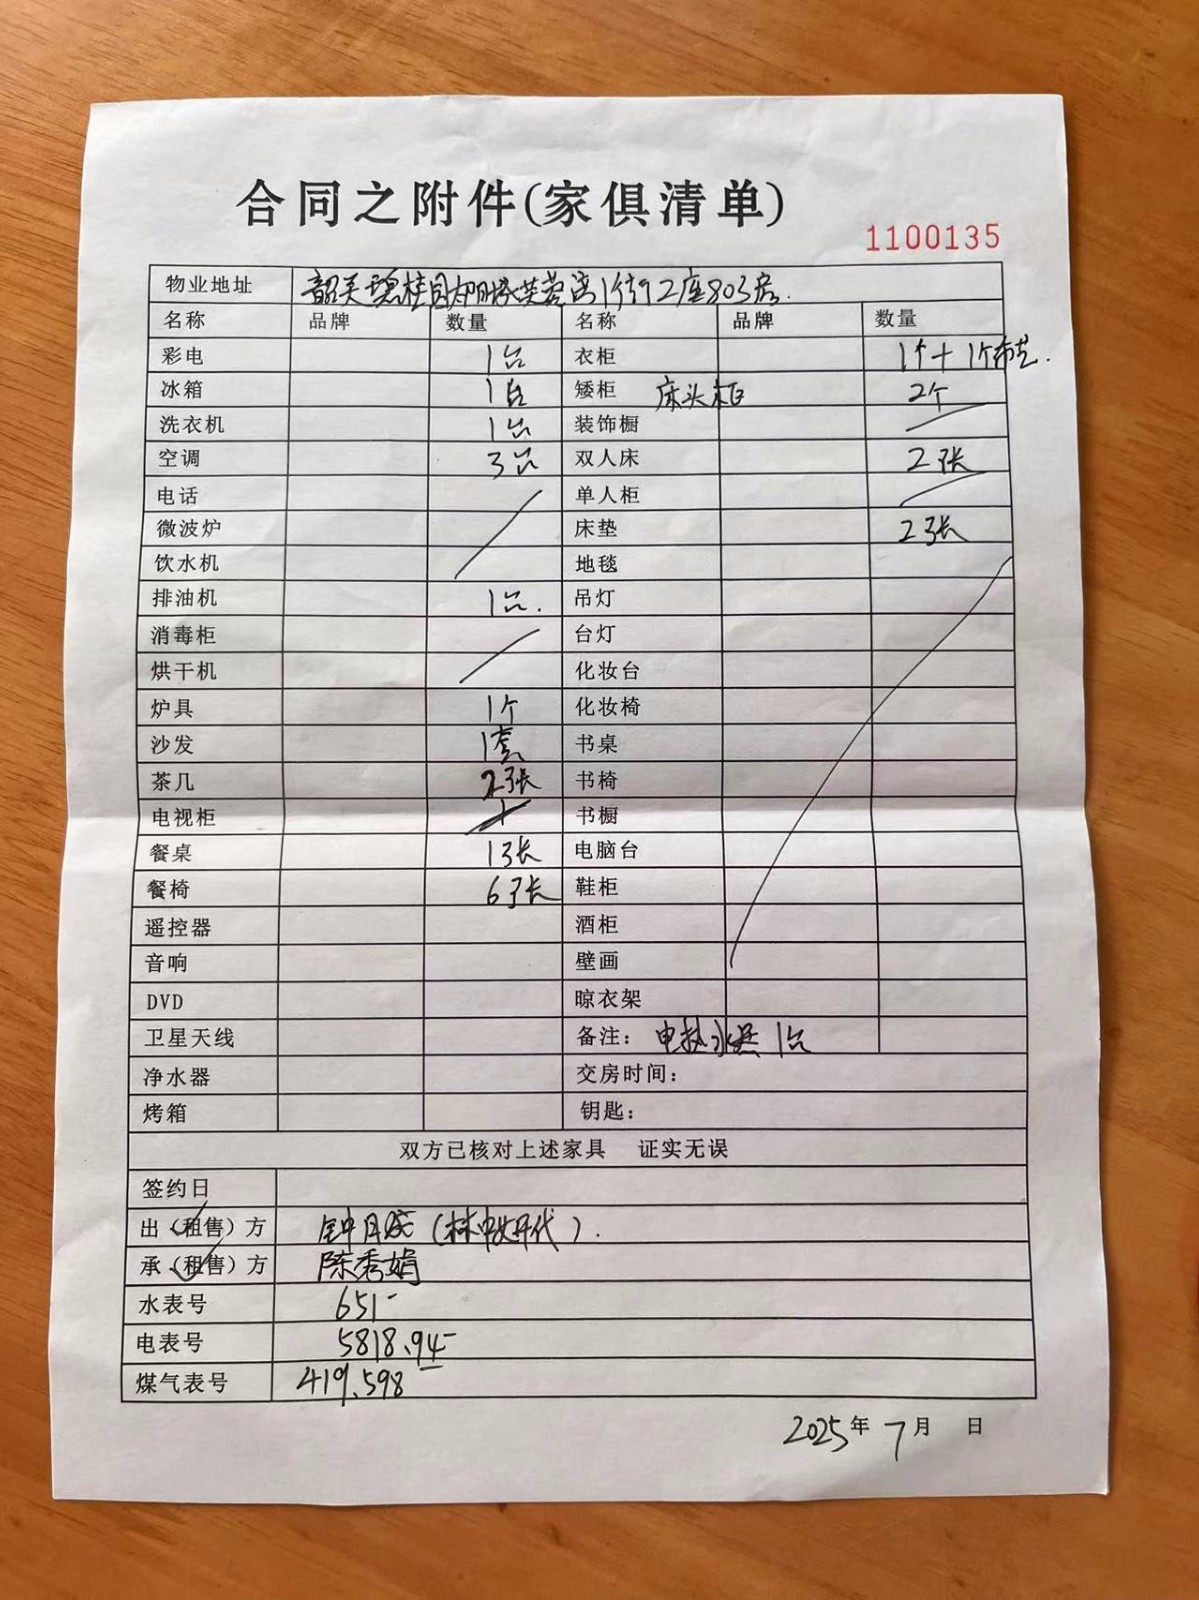 合同之附件(家俱清单)
1100135
物业地址 韶关碧桂园太阳城芙蓉湾1街2座803房.
名称 品牌 数量 名称 品牌 数量
彩电 1台 衣柜 1个+1个布艺.
冰箱 1台 矮柜 床头柜 2个
洗衣机 1台 装饰橱
空调 3台 双人床 2张
电话 单人柜
微波炉 床垫 2张
饮水机 地毯
排油机 1台. 吊灯
消毒柜 台灯
烘干机 化妆台
炉具 1个 化妆椅
沙发 1套 书桌
茶几 2张 书椅
电视柜 书橱
餐桌 1张 电脑台
餐椅 6张 鞋柜
遥控器 酒柜
音响 壁画
DVD 晾衣架
卫星天线 备注: 电热水器 1台
净水器 交房时间:
烤箱 钥匙:
双方已核对上述家具 证实无误
签约日
出(租售)方 钟月 (林 代).
承(租售)方 陈秀娟
水表号 651-
电表号 5818.94-
煤气表号 419.598
2025年 7月 日